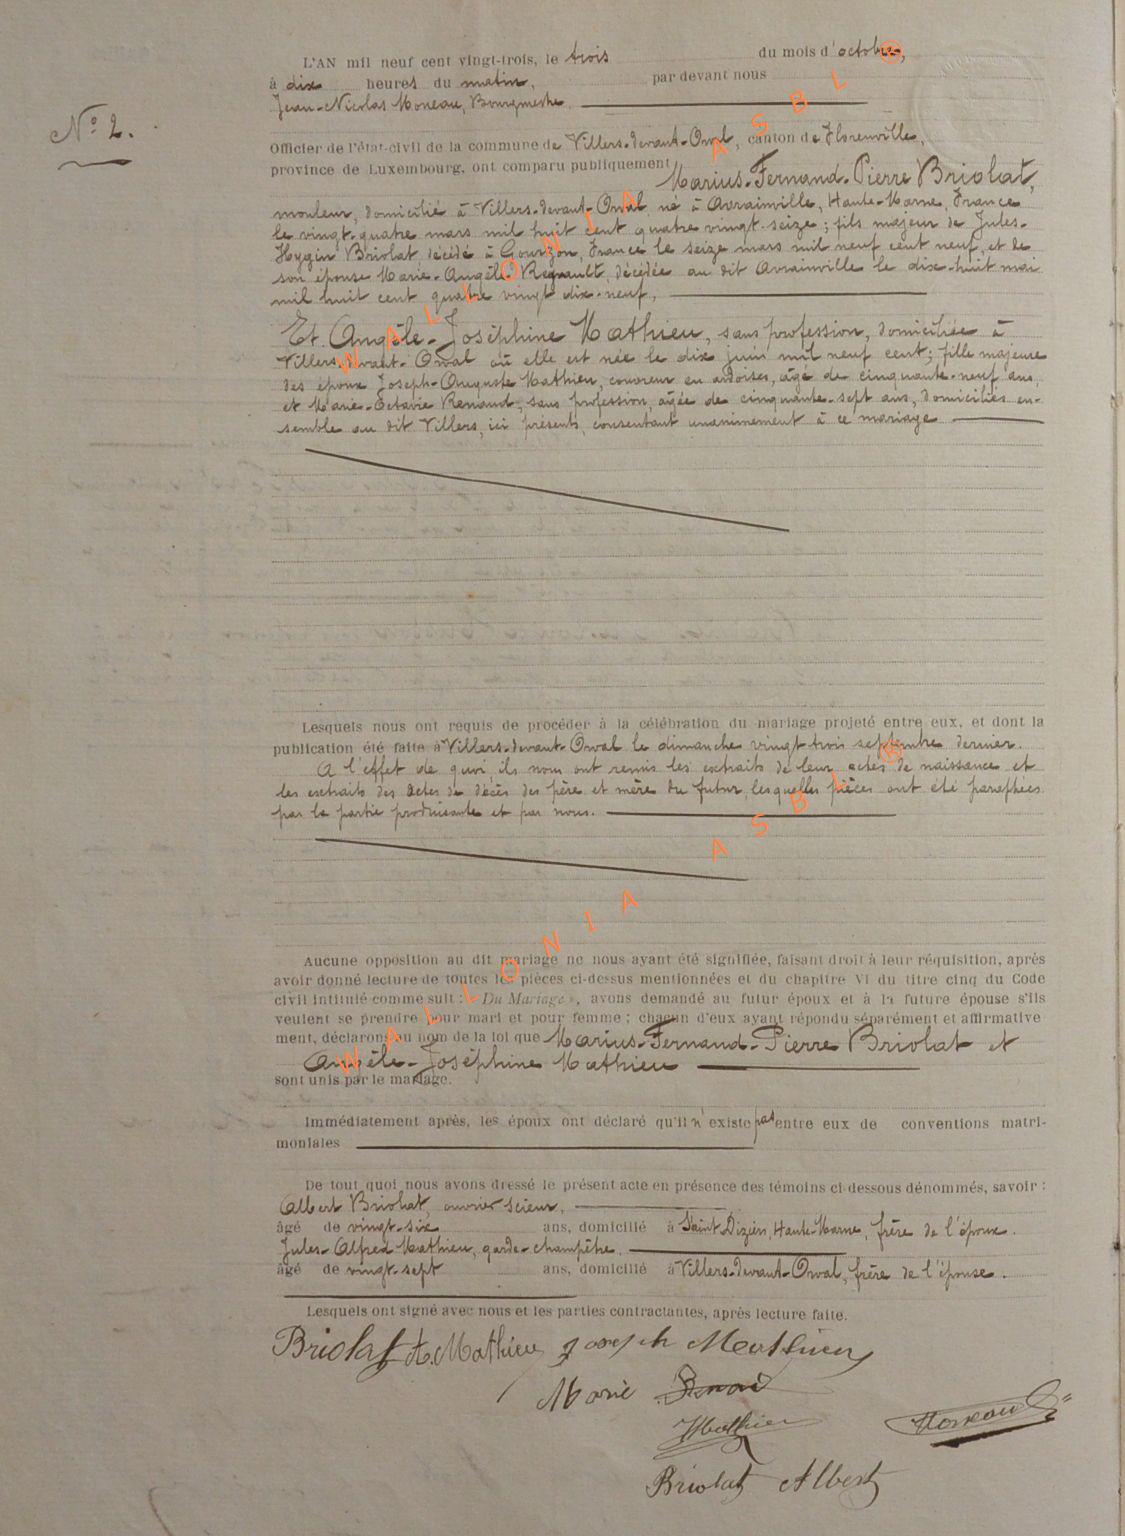 L'AN mil neuf cent vingt-trois, le trois du mois d'octobre,
à dix heures du matin, par devant nous
Jean-Nicolas Moneau, Bourgmestre
N° 2.
Officier de l'état-civil de la commune de Villers-devant-Orval, canton de Florenville,
province de Luxembourg, ont comparu publiquement
Marius-Fernand-Pierre Briolat,
mouleur, domicilié à Villers-devant-Orval, né à Avrainville, Haute-Marne, France
le vingt-quatre mars mil huit cent quatre vingt-seize; fils majeur de Jules-
Hygin Briolat décédé à Gourzon, France le seize mars mil neuf cent neuf, et de
son épouse Marie-Angèle Regnault, décédée au dit Avrainville le dix-huit mai
mil huit cent quatre vingt dix-neuf,
Et Angèle-Joséphine Mathieu, sans profession, domiciliée à
Villers-devant-Orval où elle est née le dix juin mil neuf cent; fille majeure
des époux Joseph-Auguste Mathieu, couvreur en ardoises, âgé de cinquante-neuf ans,
et Marie-Octavie Renaud, sans profession, âgée de cinquante-sept ans, domiciliés en-
semble au dit Villers, ici présents, consentant unanimement à ce mariage
Lesquels nous ont requis de procéder à la célébration du mariage projeté entre eux, et dont la
publication été faite à Villers-devant-Orval le dimanche vingt trois septembre dernier.
A l'effet de quoi, ils nous ont remis les extraits de leur actes de naissance et
les extraits des actes de décès des père et mère du futur, lesquelles pièces ont été paraphées
par la partie produisante et par nous.
Aucune opposition au dit mariage ne nous ayant été signifiée, faisant droit à leur réquisition, après
avoir donné lecture de toutes les pièces ci-dessus mentionnées et du chapitre VI du titre cinq du Code
civil intitulé comme suit : « Du Mariage », avons demandé au futur époux et à la future épouse s'ils
veulent se prendre pour mari et pour femme ; chacun d'eux ayant répondu séparément et affirmative
ment, déclarons au nom de la loi que Marius-Fernand-Pierre Briolat et
Angèle-Joséphine Mathieu
sont unis par le mariage.
Immédiatement après, les époux ont déclaré qu'il n'existe pas entre eux de conventions matri-
moniales
De tout quoi nous avons dressé le présent acte en présence des témoins ci-dessous dénommés, savoir :
Albert Briolat, ouvrier scieur,
âgé de vingt-six ans, domicilié à Saint Dizier, Haute-Marne, frère de l'époux.
Jules-Alfred Mathieu, garde-champêtre,
âgé de vingt-sept ans, domicilié à Villers-devant-Orval, frère de l'épouse.
Lesquels ont signé avec nous et les parties contractantes, après lecture faite.
Briolat A. Mathieu Joseph Mathieu
Marie
JMathieu Moneau
Briolat Albert
WALLONIA ASBL ®
WALLONIA ASBL ®